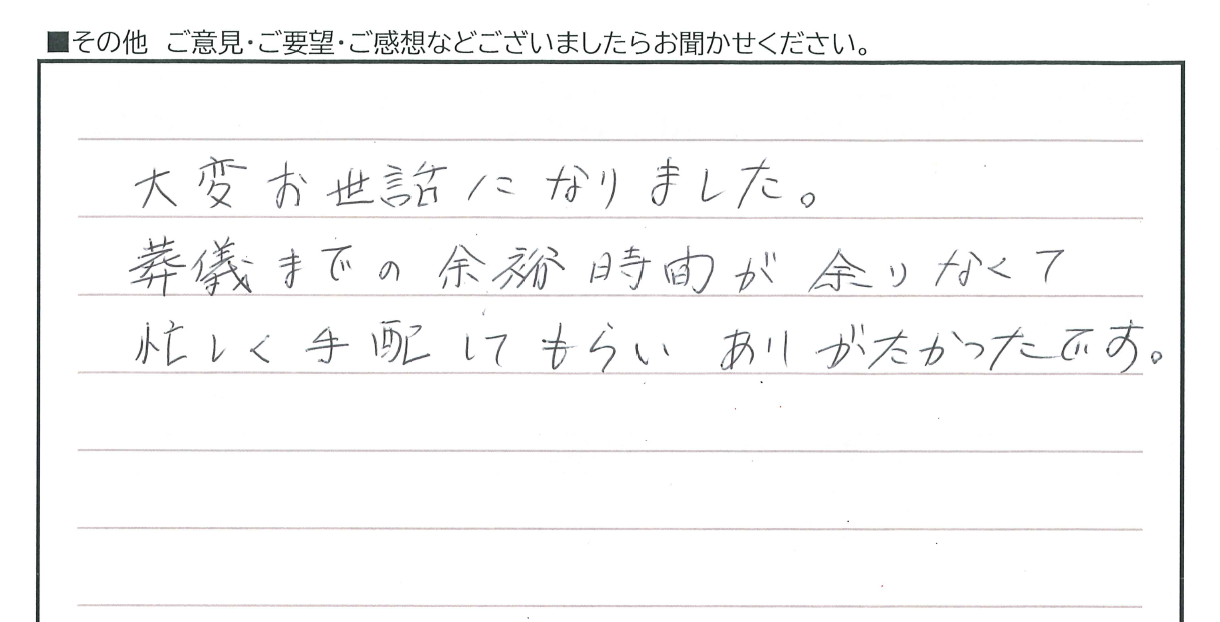 ■その他 ご意見・ご要望・ご感想などございましたらお聞かせください。
大変お世話になりました。
葬儀までの余裕時間が余りなくて
忙しく手配してもらいありがたかったです。